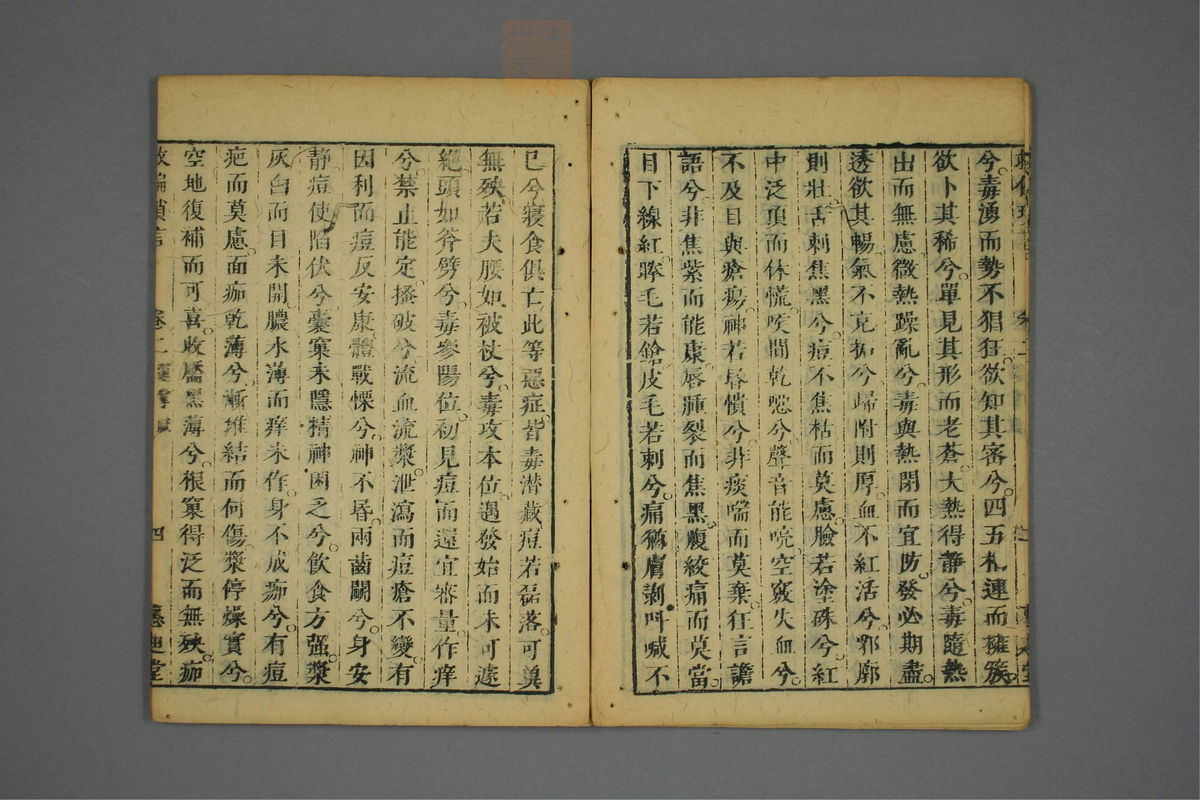 兮毒湧而勢不猖狂欲知其吝兮四五相連而擁簇
欲卜其稀兮單見其形而老蒼大熱得靜兮毒隨熱
出而無慮微熱躁亂兮毒與熱閉而宜防發必期盡
透欲其暢氣不克拓兮歸附則厚血不紅活兮郛廓
則壯舌刺焦黑兮痘不焦枯而莫慮臉若塗硃兮紅
中泛頂而休慌喉間乾噁兮聲音能吭空竅失血兮
不及目與瘡瘍神若昏憒兮非痰喘而莫棄狂言譫
語兮非焦紫而能康唇腫裂而焦黑腹絞痛而莫當
目下線紅睟毛若鎗皮毛若刺兮痛猶膚剝叫喊不
已兮寢食俱亡此等惡症皆毒潛藏痘若磊落可奠
無殃若夫腰如被杖兮毒攻本位遇發始而未可遽
絕頭如斧劈兮毒參陽位初見痘而還宜審量作痒
兮禁止能定搔破兮流血流漿泄瀉而痘瘡不變有
因利而痘反安康體戰慄兮神不昏兩齒鬭兮身安
靜痘使陷伏兮囊窠未隱精神困乏兮飲食方强漿
灰白而目未開膿水薄而痒未作身不成痂兮有痘
疤而莫慮面痂乾薄兮漸堆結而何傷漿停燥實兮
空地復補而可喜收靨黑薄兮根窠得泛而無殃痂
救偏瑣言 卷二 四 惠迪堂